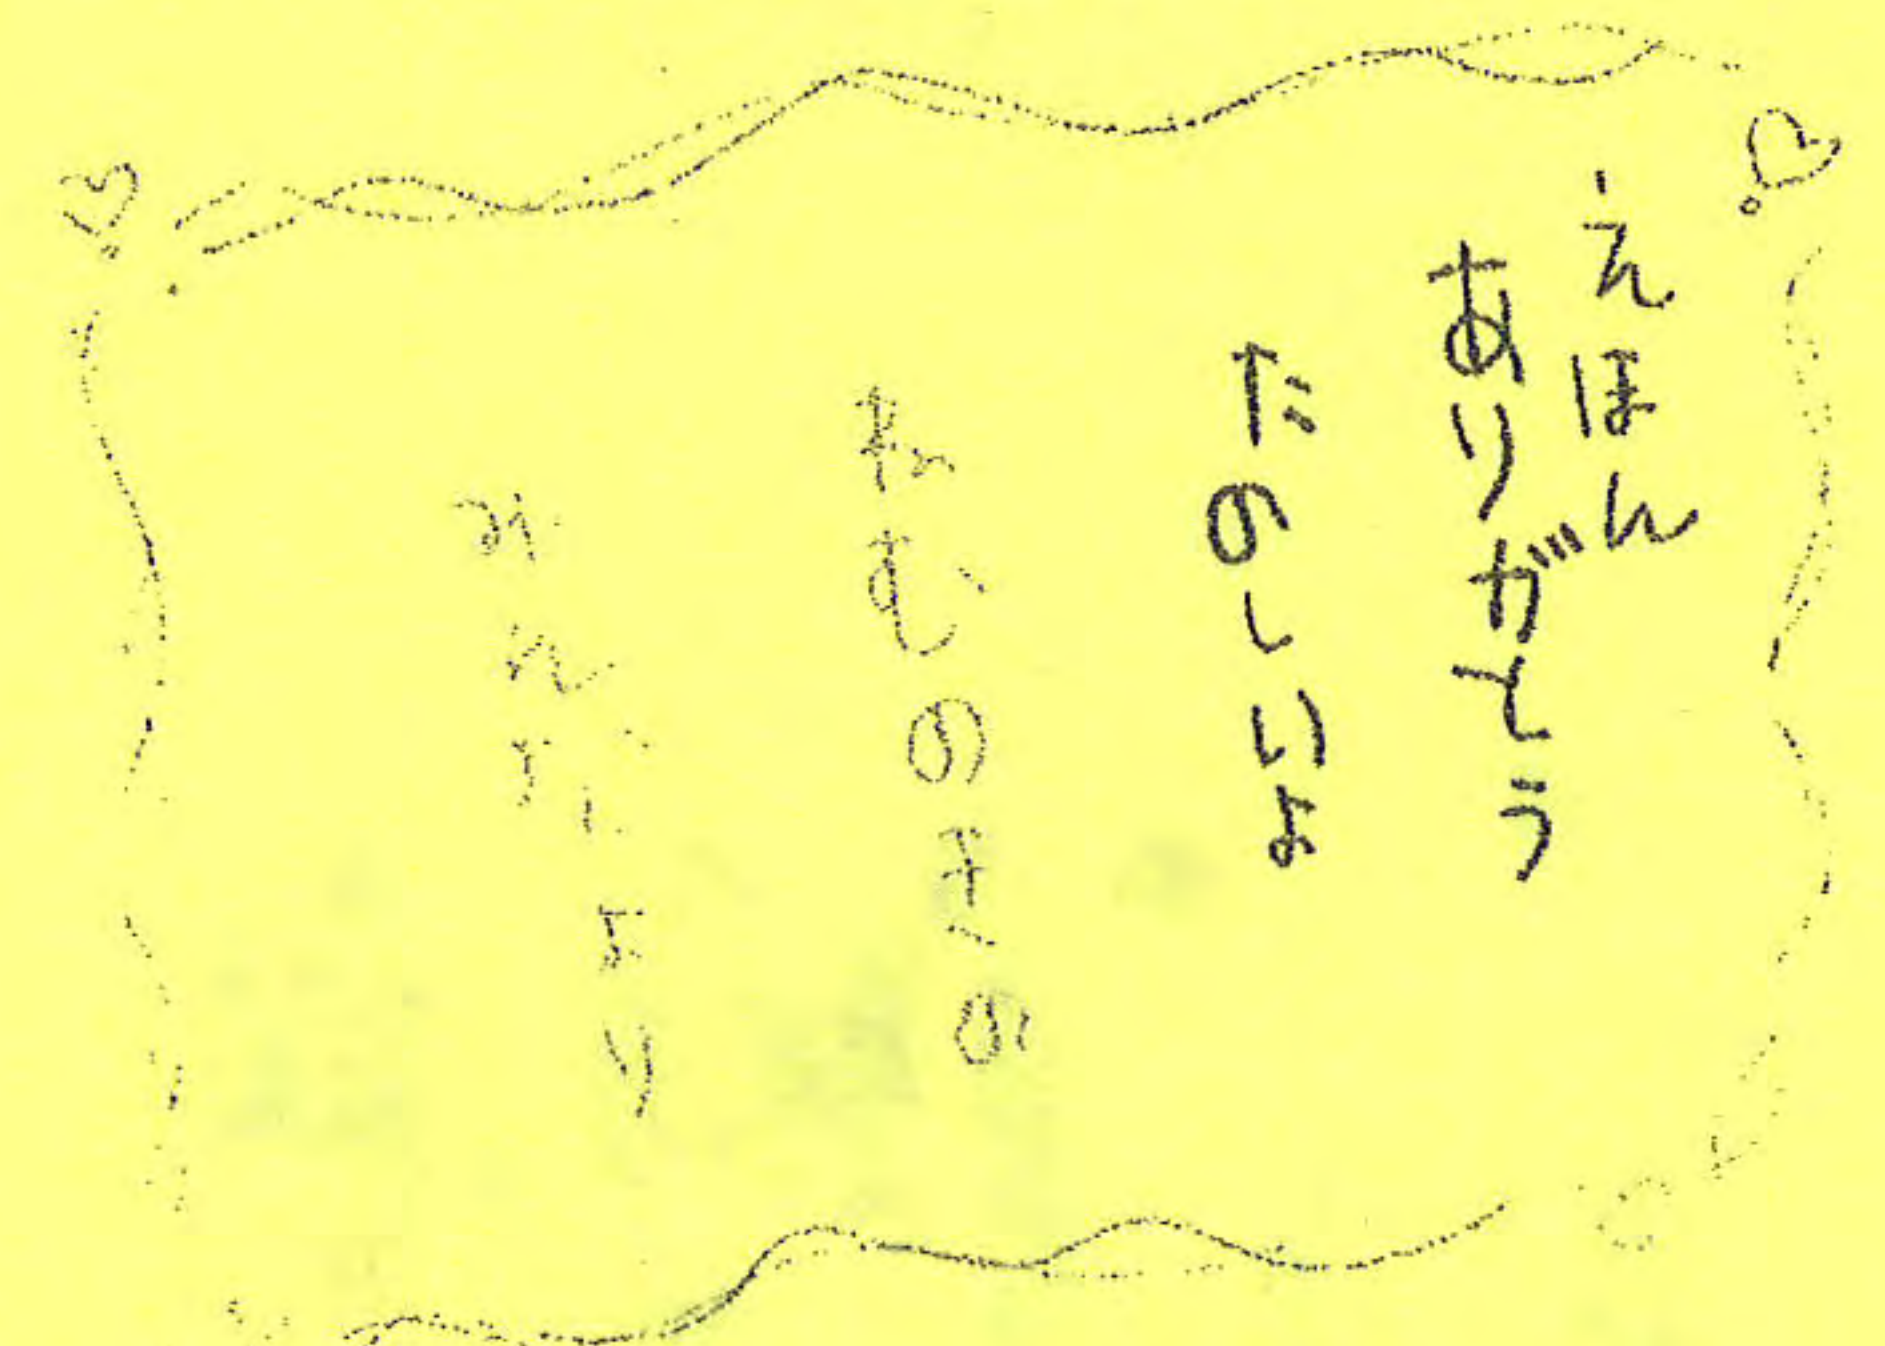 えほん
ありがとう
たのしいよ
ねむのきの
みんなより